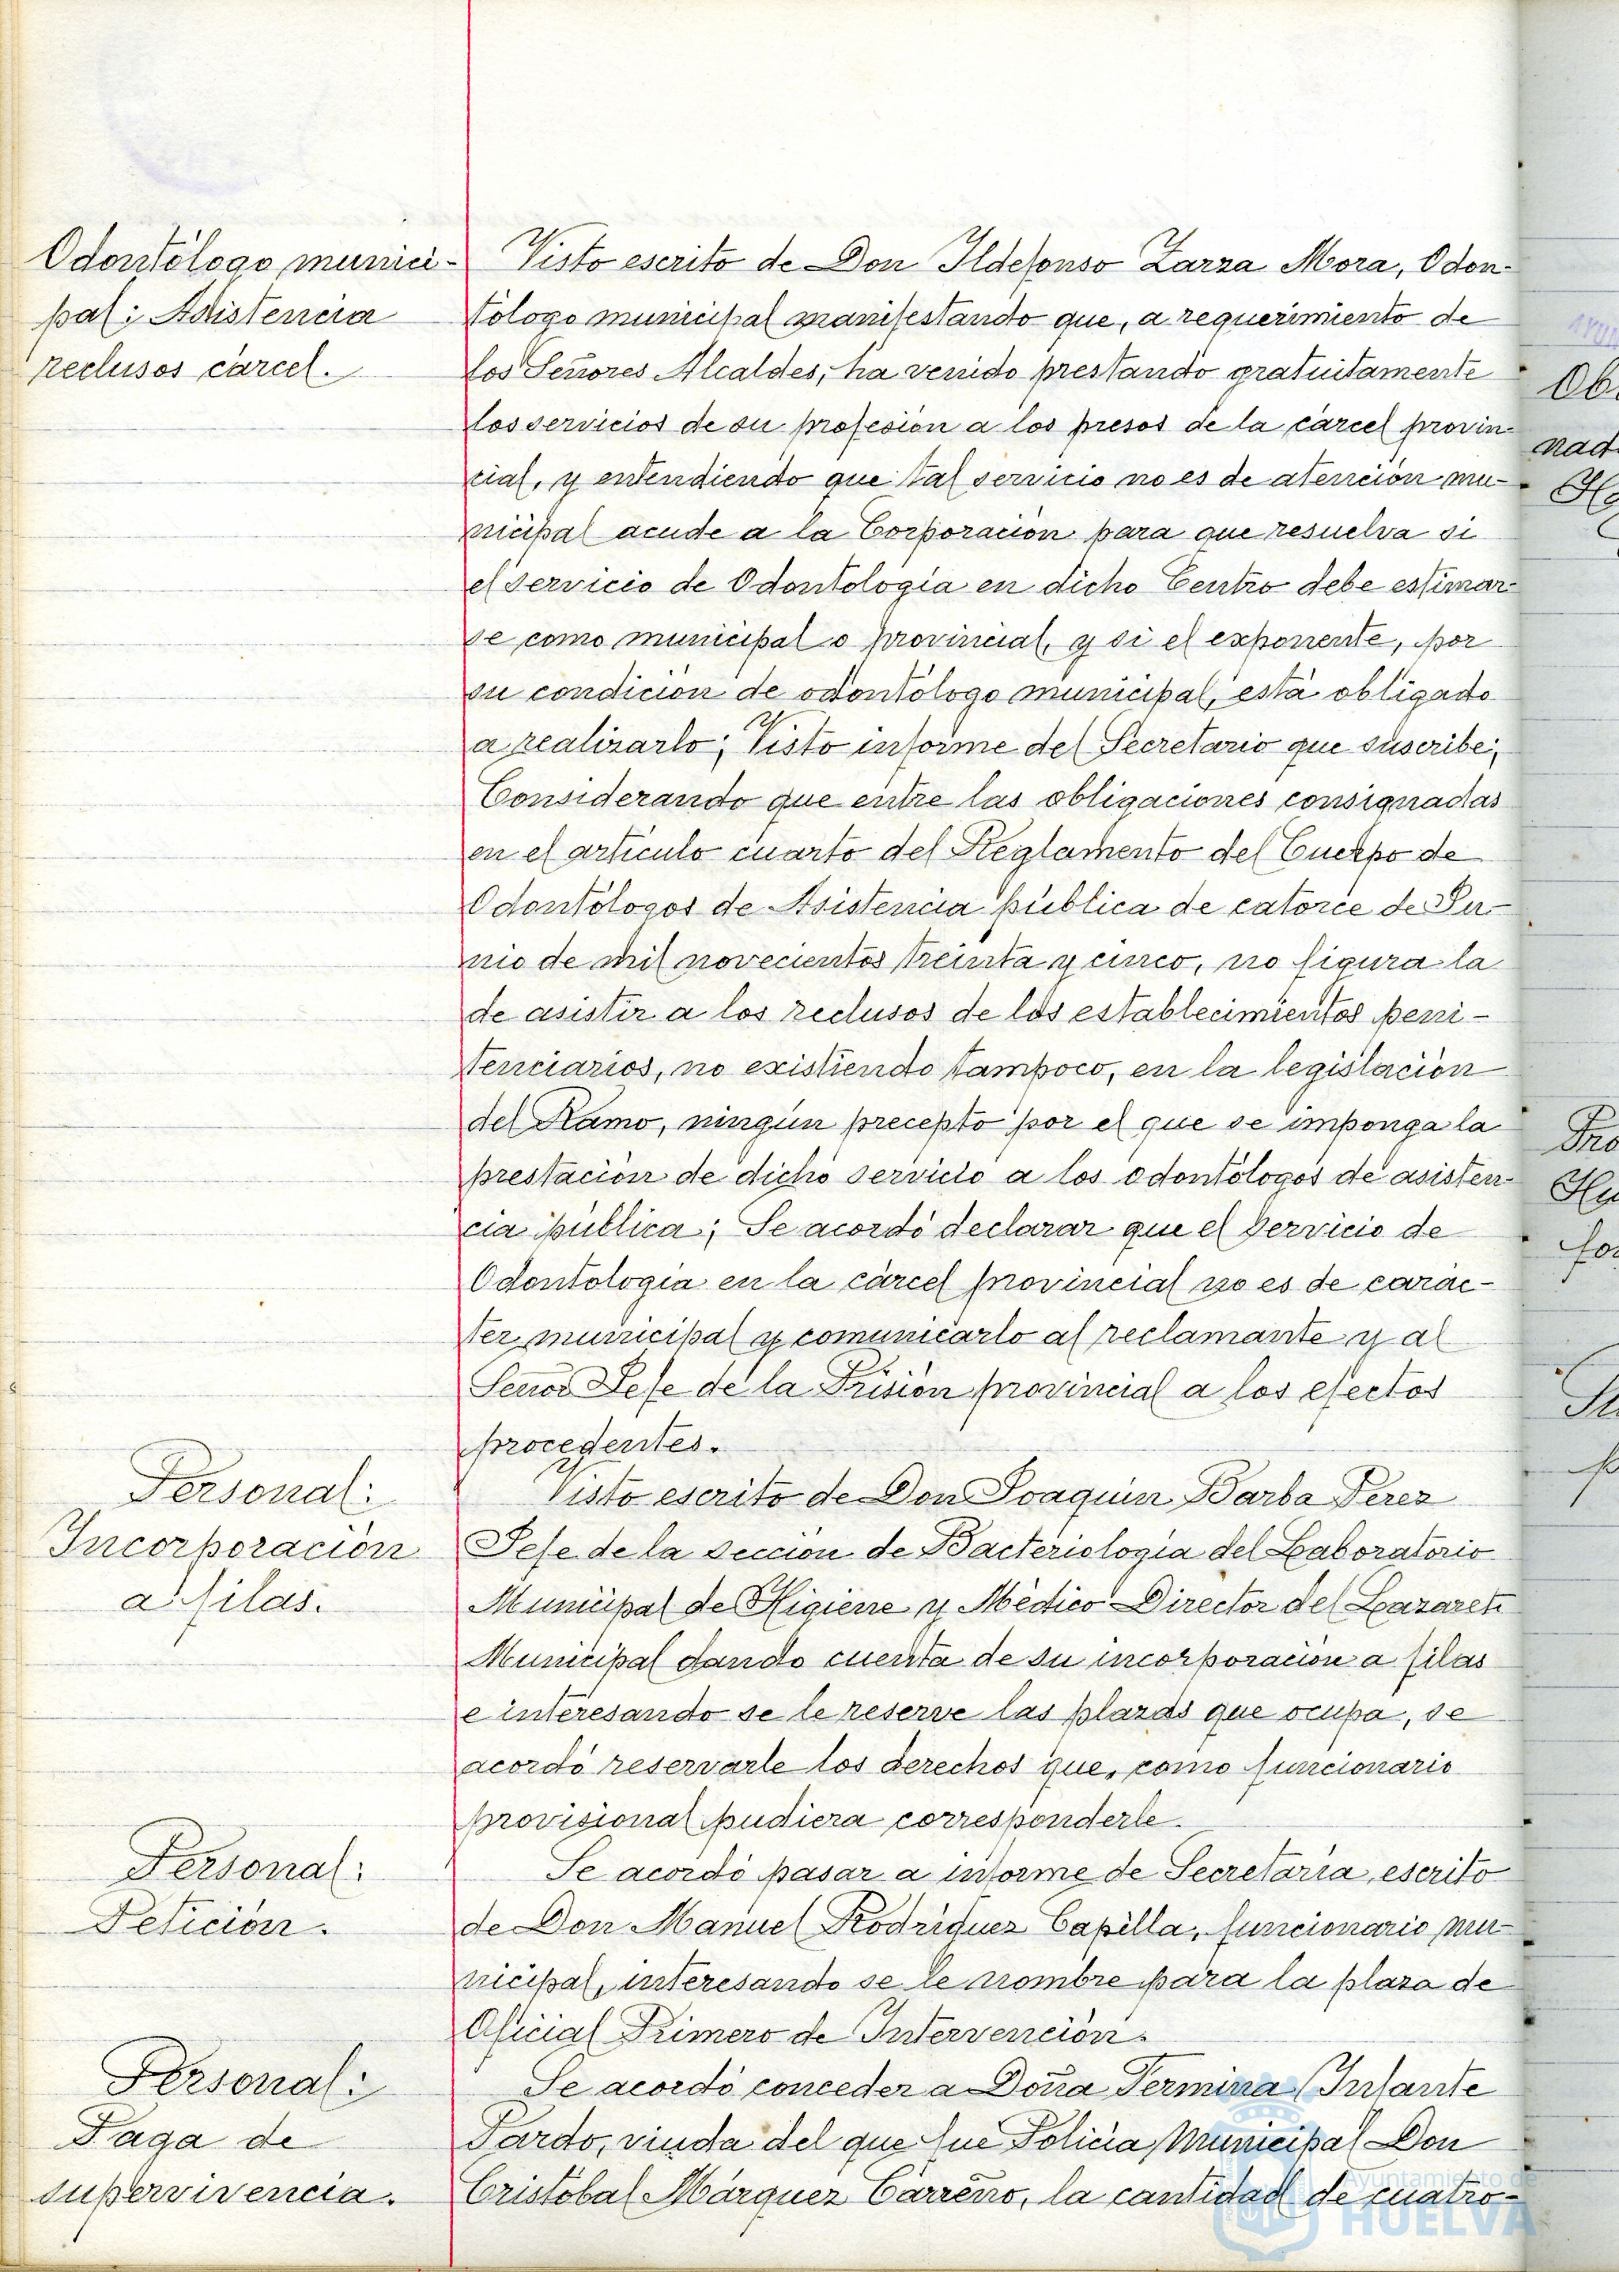 Odontólogo munici-
pal: Asistencia
reclusos cárcel.
Visto escrito de Don Ildefonso Zarza Mora, Odon-
tólogo municipal manifestando que, a requerimiento de
los Señores Alcaldes, ha venido prestando gratuitamente
los servicios de su profesión a los presos de la cárcel provin-
cial, y entendiendo que tal servicio no es de atención mu-
nicipal acude a la Corporación para que resuelva si
el servicio de Odontología en dicho Centro debe estimar-
se como municipal o provincial, y si el exponente, por
su condición de odontólogo municipal, está obligado
a realizarlo; Visto informe del Secretario que suscribe;
Considerando que entre las obligaciones consignadas
en el artículo cuarto del Reglamento del Cuerpo de
Odontólogos de Asistencia pública de catorce de Ju-
nio de mil novecientos treinta y cinco, no figura la
de asistir a los reclusos de los establecimientos peni-
tenciarios, no existiendo tampoco, en la legislación
del Ramo, ningún precepto por el que se imponga la
prestación de dicho servicio a los odontólogos de asisten-
cia pública; Se acordó declarar que el Servicio de
Odontología en la cárcel provincial no es de carác-
ter municipal y comunicarlo al reclamante y al
Señor Jefe de la Prisión provincial a los efectos
procedentes.
Personal:
Incorporación
a filas.
Visto escrito de Don Joaquín Barba Pérez
Jefe de la Sección de Bacteriología del Laboratorio
Municipal de Higiene y Médico Director del Lazareto
Municipal dando cuenta de su incorporación a filas
e interesando se le reserve las plazas que ocupa, se
acordó reservarle los derechos que, como funcionario
provisional pudiera corresponderle.
Personal:
Petición.
Se acordó pasar a informe de Secretaría, escrito
de Don Manuel Rodríguez Capilla, funcionario mu-
nicipal, interesando se le nombre para la plaza de
Oficial Primero de Intervención.
Personal:
Paga de
supervivencia.
Se acordó conceder a Doña Fermina Infante
Pardo, viuda del que fue Policía Municipal Don
Cristóbal Márquez Carreño, la cantidad de cuatro-
Ayuntamiento de
HUELVA